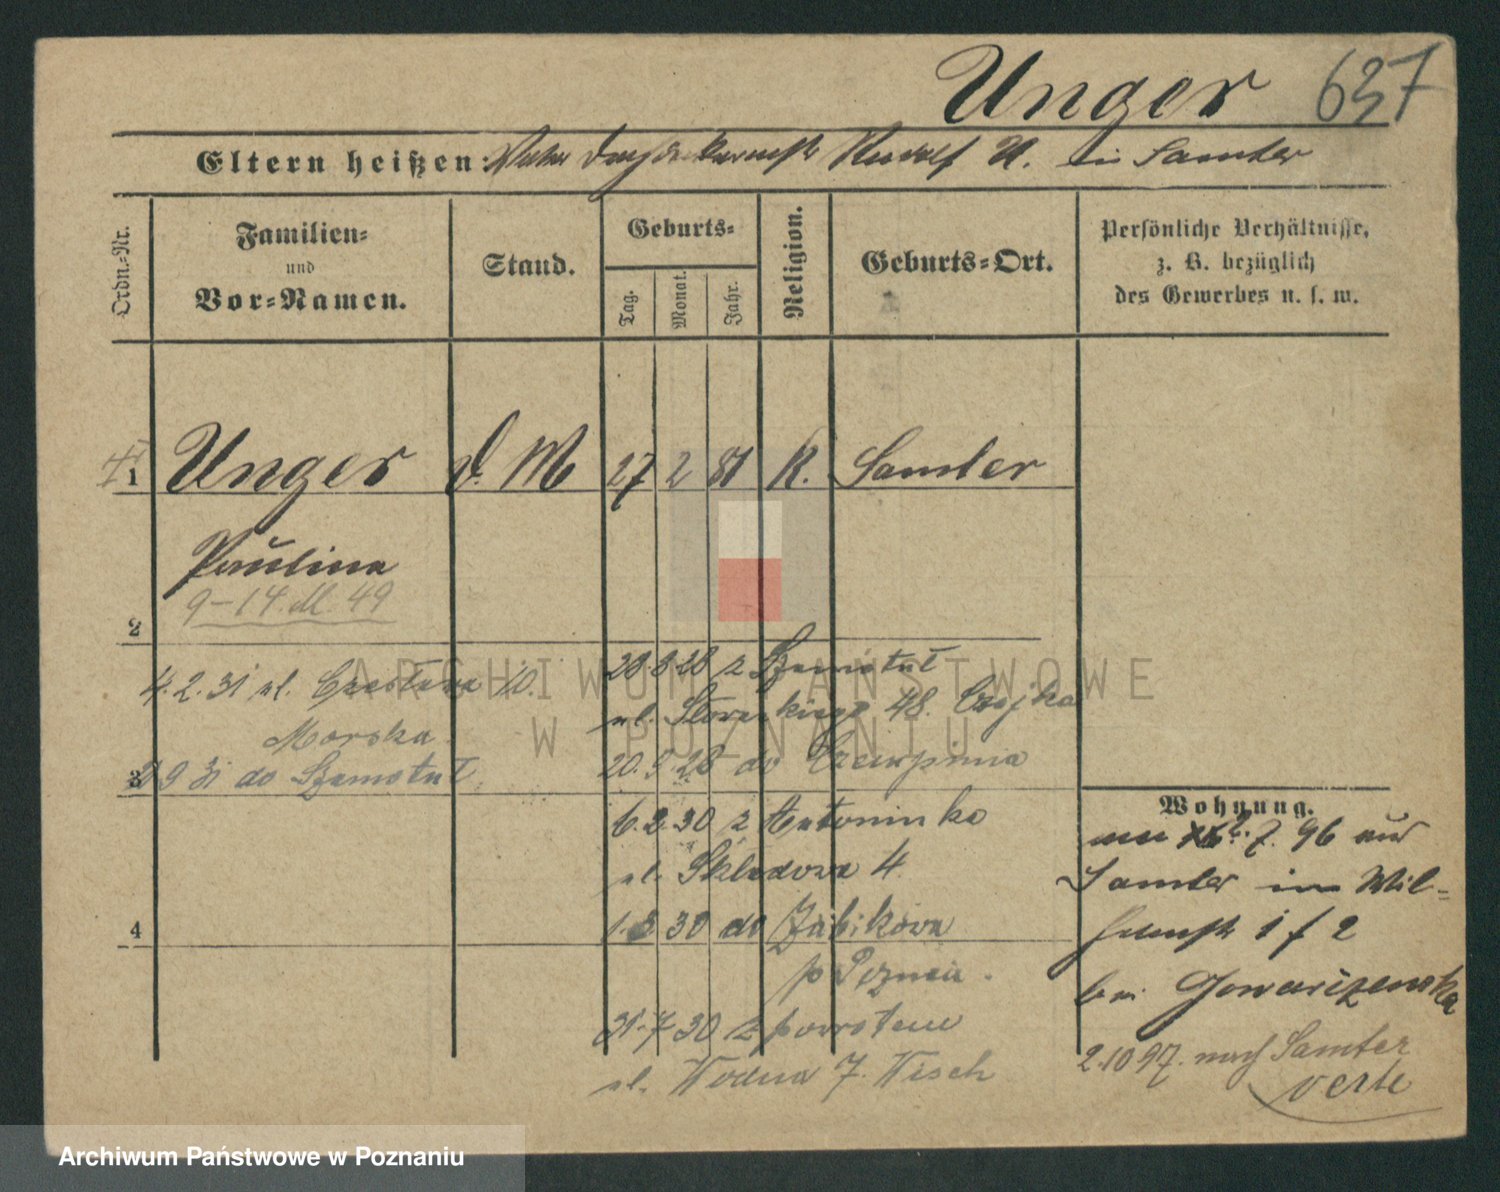 Unger 637
Eltern heißen: Vater Rudolf U. in Samter
Ordn.-Nr.
Familien-
und
Vor-Namen.
Stand.
Geburts-
Tag.
Monat.
Jahr.
Religion.
Geburts-Ort.
Persönliche Verhältnisse,
z. B. bezüglich
des Gewerbes u. s. w.
1 Unger d. M 27 2 81 K. Samter
Paulina
9-14. M. 49
2
4.2.31 ul. 10.
Morska
3 9 31 do Szamotuł
28 8 28 z Szamotuł
ul. Słowackiego 48. Czajka
20.9.28 do Czempinia
6.2.30 z Antoninka
ul. Składowa 4.
4
1.3 30 do Żabikowa
p Poznań.
31.7 30 z powrotem
ul. Wodna 7. Wisch
Wohnung.
7. 96 aus
Samter Wil-
helmstr 1 f 2
bei
2.10 97. nach Samter
verte
ARCHIWUM PAŃSTWOWE
W POZNANIU
Archiwum Państwowe w Poznaniu